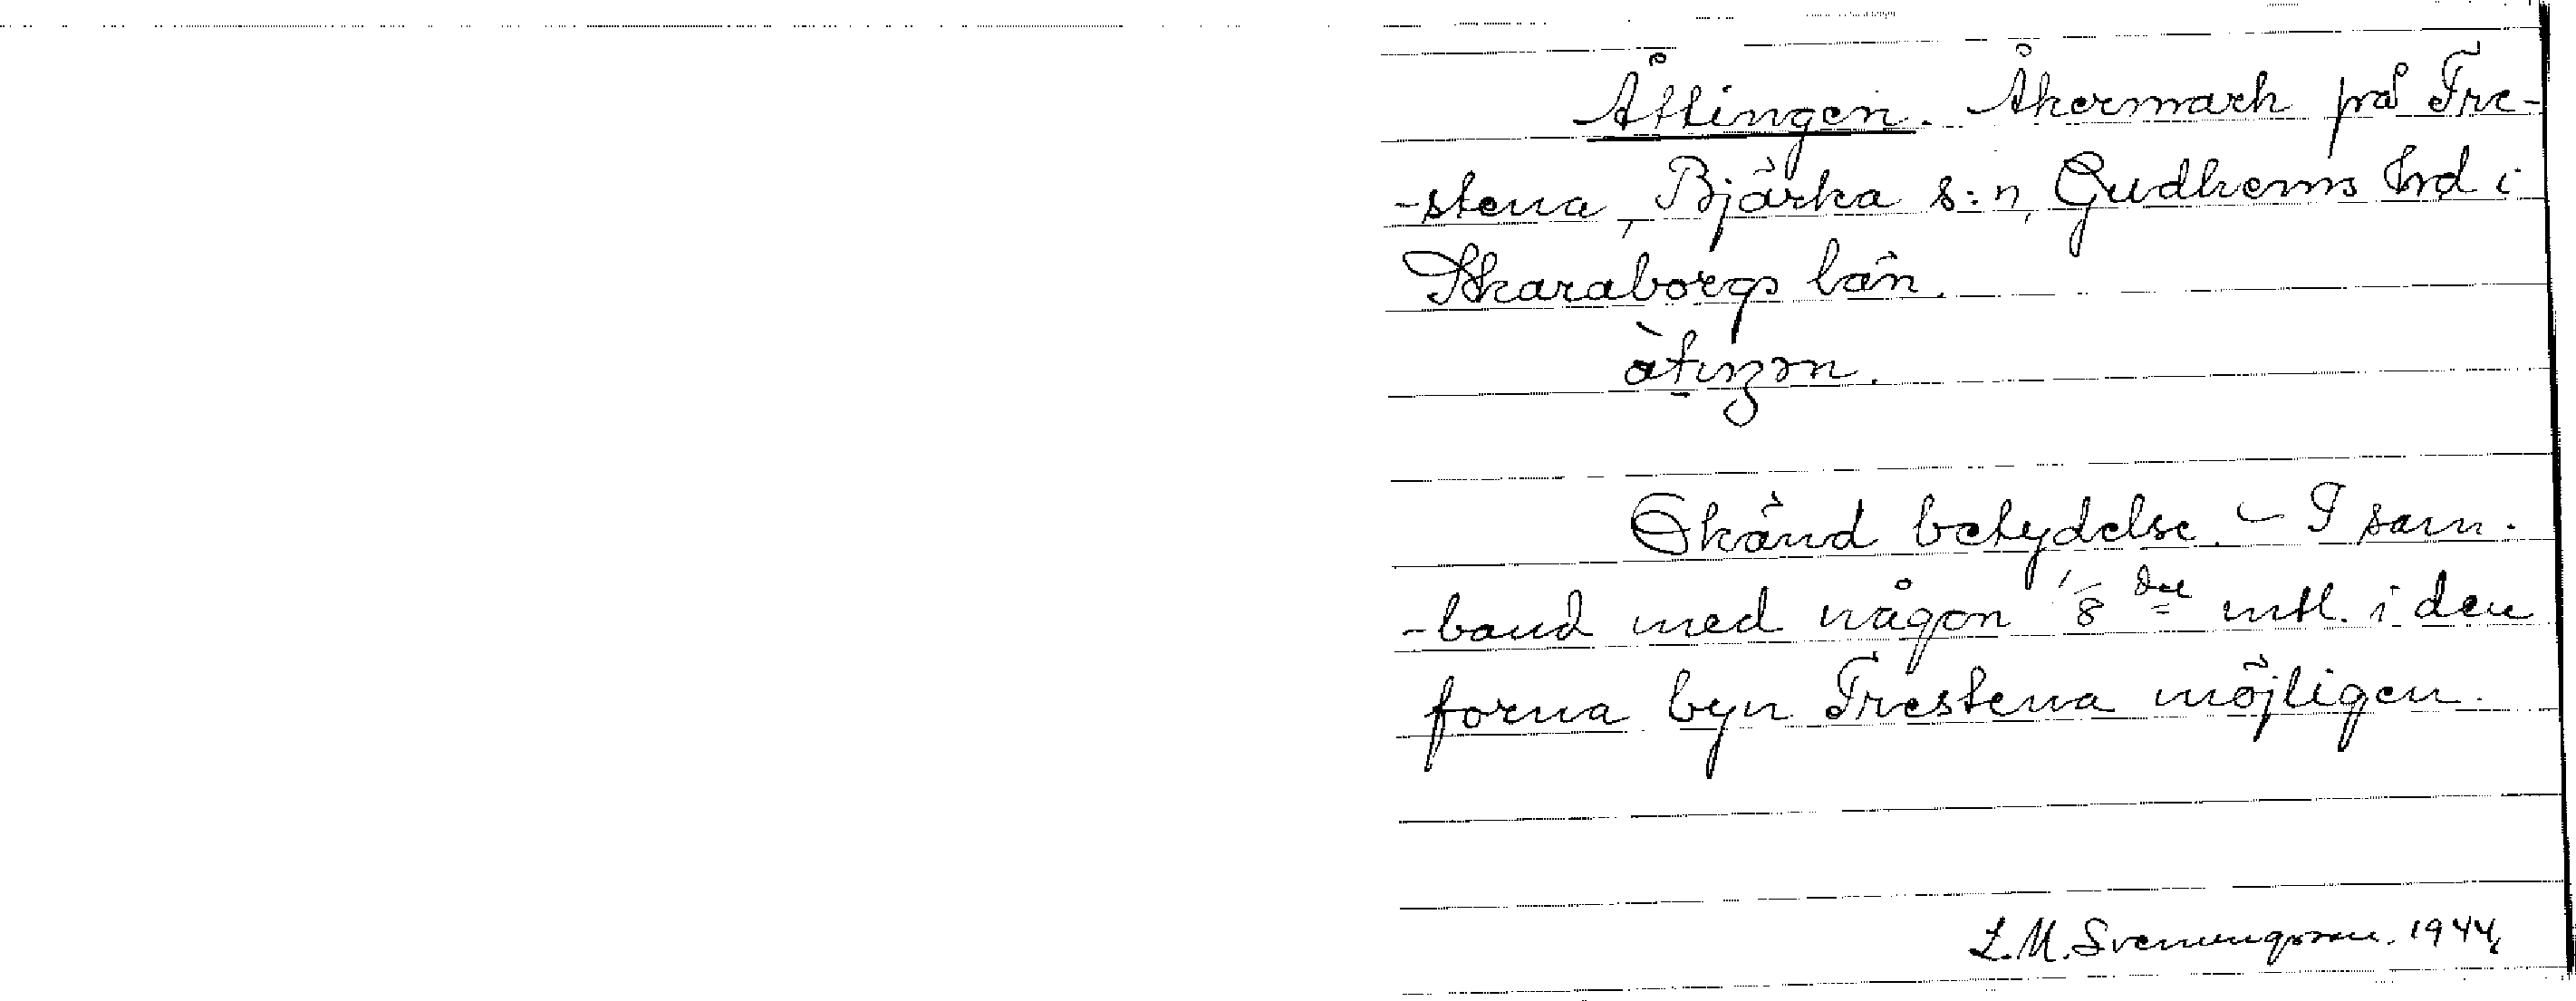 Åttingen. Åkermark på Fre-
-stena, Bjärka s:n, Gudhems hrd i
Skaraborgs län.
Okänd betydelse. – I sam-
-band med någon 1/8 del mtl. i den
forna byn Frestena möjligen.
L.M. Svenungsson. 1944.